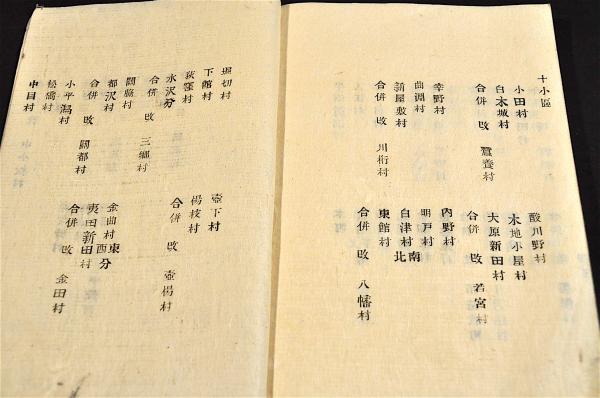 十小區
小田村
白木城村
合併 改 鷺養村
幸野村
曲淵村
新屋敷村
合併 改 川桁村
酸川野村
木地小屋村
大原新田村
合併 改 若宮村
內野村
明戸村
白津村南北
東館村
合併 改 八幡村
堀切村
下館村
荻窪村
水沢分
合併 改 三郷村
關脇村
都沢村
合併 改 關都村
小平潟村
松橋村
中目村
壺下村
楊枝村
合併 改 壺楊村
金曲村東西分
夷田新田村
合併 改 金田村